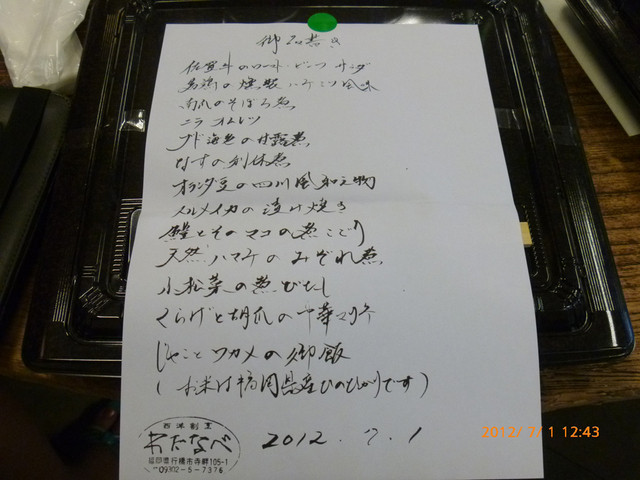 御品書き
佐賀牛のローストビーフサラダ
若鶏の燻製ハチミツ風味
南瓜のそぼろ煮
ニラオムレツ
ブド海老の甘露煮
なすの利休煮
オランダ豆の四川風和え物
スルメイカの漬け焼き
鱧とそのマコの煮こごり
天然ハマチのみぞれ煮
小松菜の煮びたし
くらげと胡瓜の中華マリネ
じゃことワカメの御飯
(お米は福岡県産ひのひかりです)
西洋割烹
わたなべ
福岡県行橋市寺畔105-1
09302-5-7376
2012.7.1
2012/7/1 12:43